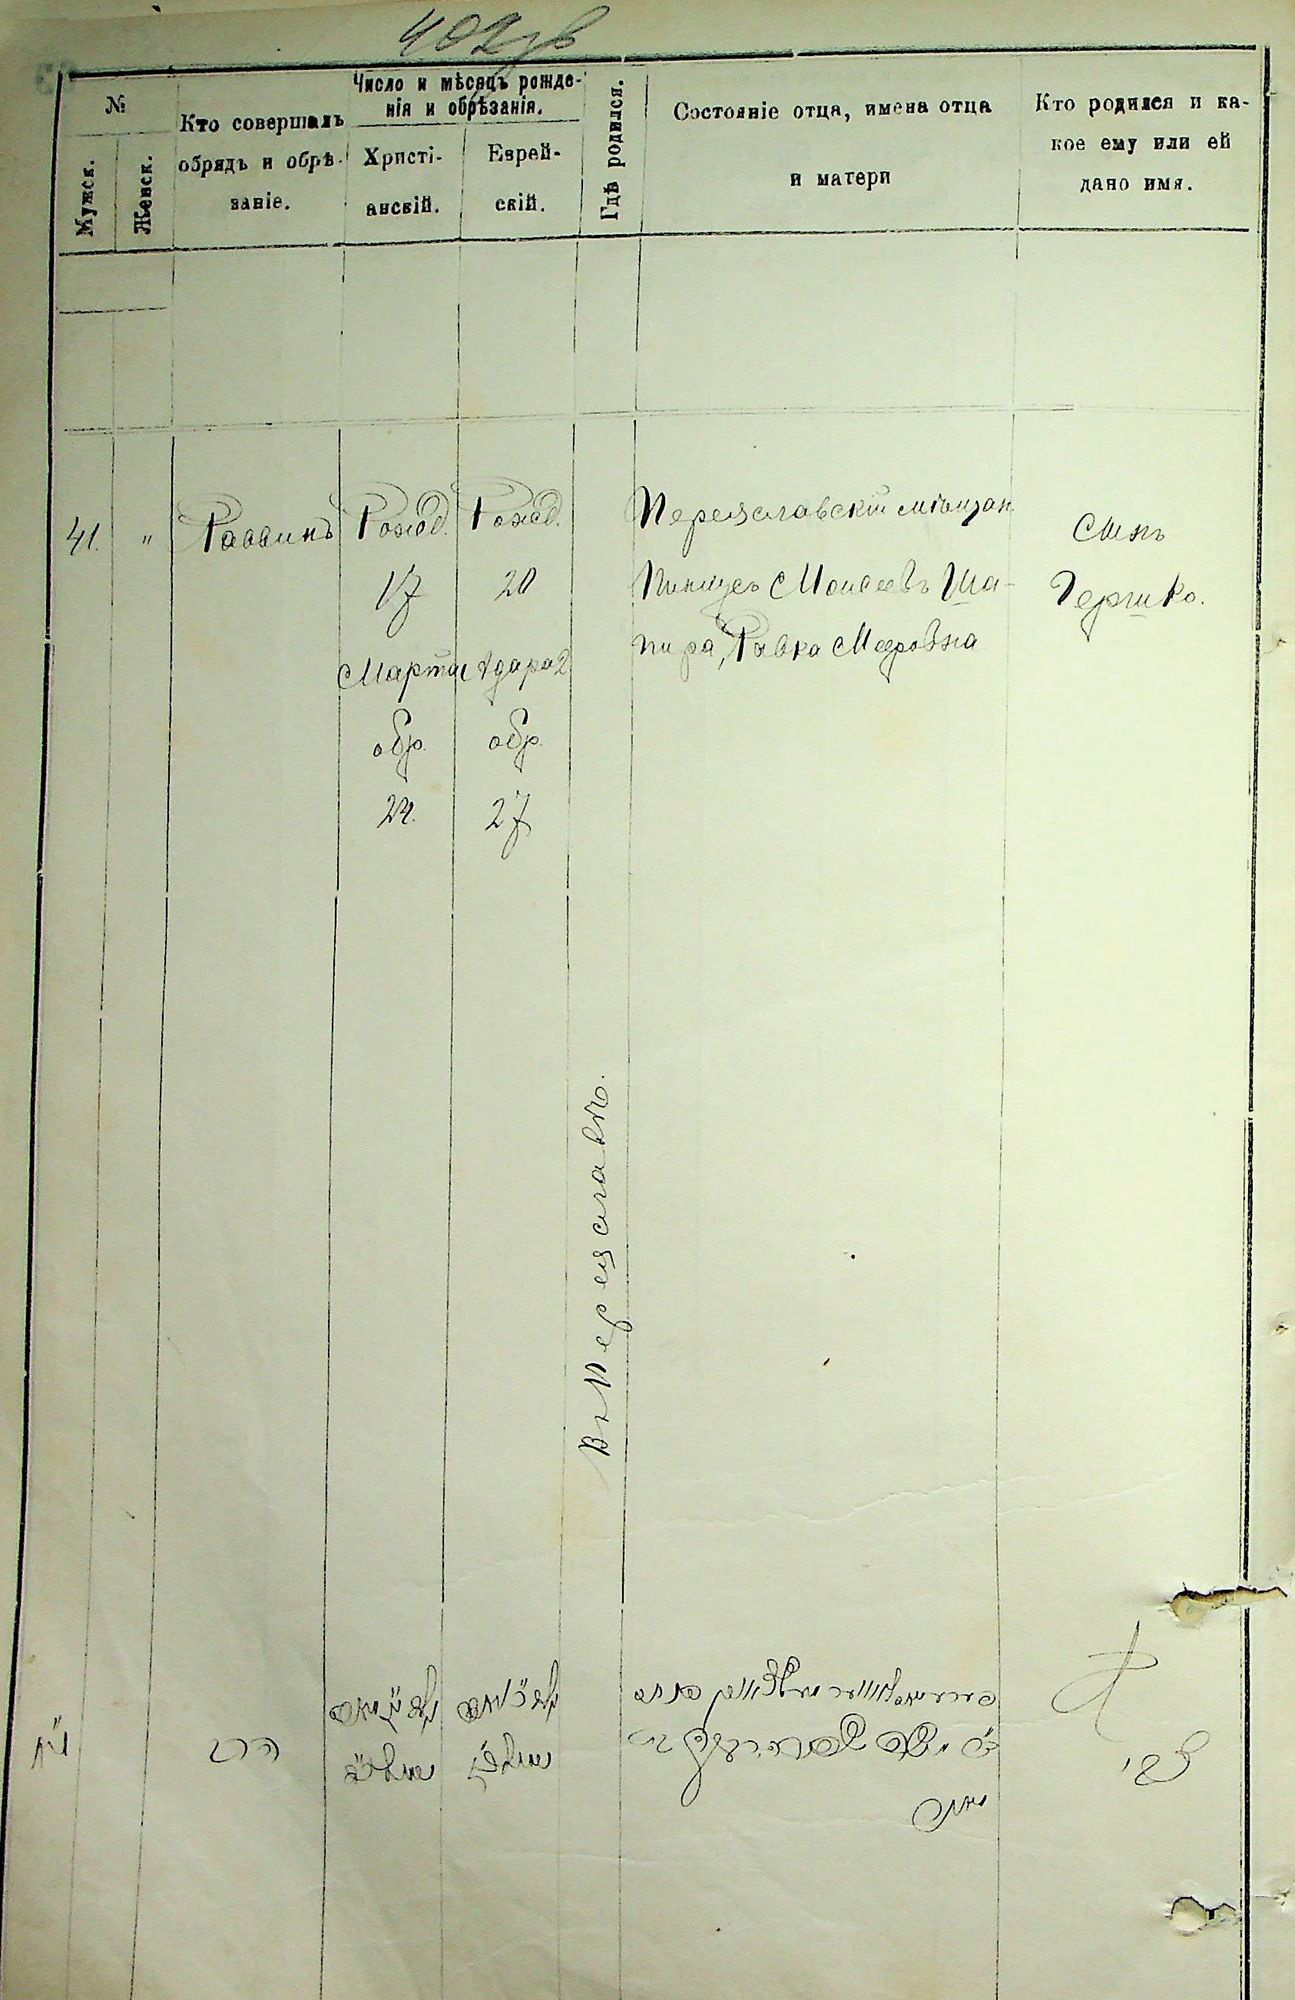 402 об
№
Мужск.
Женск.
Кто совершалъ
обрядъ и обрѣ-
заніе.
Число и мѣсяцъ рожде-
нія и обрѣзанія.
Христі-
анскій.
Еврей-
скій.
Гдѣ родился.
Состояніе отца, имена отца
и матери
Кто родился и ка-
кое ему или ей
дано имя.
41. " Раввинъ
Рожд.
17
Марта
обр.
24.
Рожд.
20
Адара 2
обр.
27
Въ Переяславѣ.
Переяславскій мѣщан.
Пинхусъ Моисеевъ Ша-
пира, Ривка Мееровна
Сынъ
Гершко.
מ"א
הרב
צבי